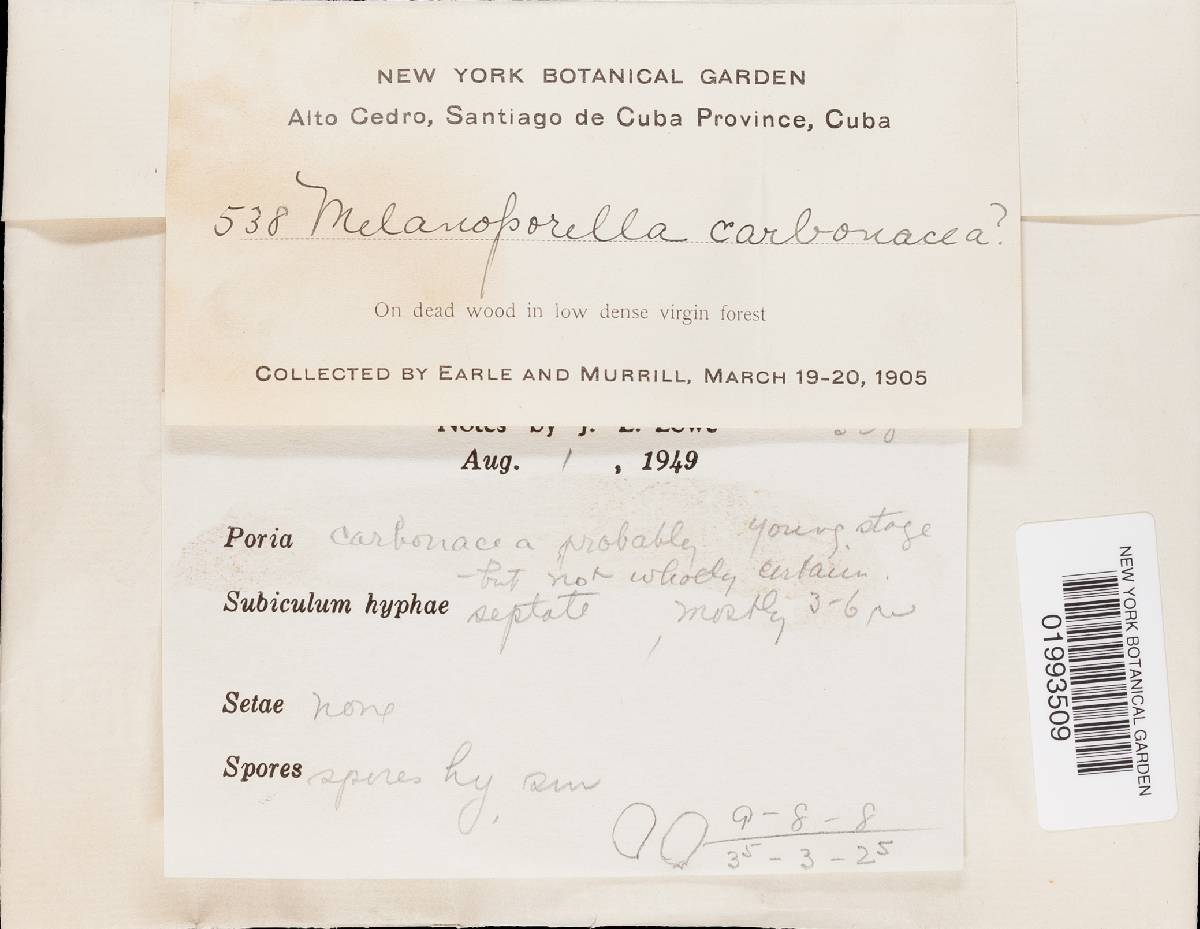 NEW YORK BOTANICAL GARDEN
Alto Cedro, Santiago de Cuba Province, Cuba
538 Melanoporella carbonacea?
On dead wood in low dense virgin forest
COLLECTED BY EARLE AND MURRILL, MARCH 19-20, 1905
Notes by J. L. Lowe
Aug. 1, 1949
Poria carbonacea probably young stage
- but not wholly certain.
Subiculum hyphae septate, mostly 3-6 μ
Setae none
Spores spores hy, sm
9 - 8 - 8
3⁵ - 3 - 2⁵
NEW YORK BOTANICAL GARDEN
01993509